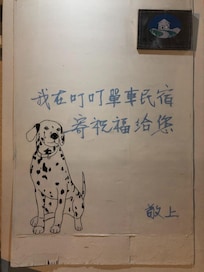 我在叮叮單車民宿
寄祝福給您
敬上